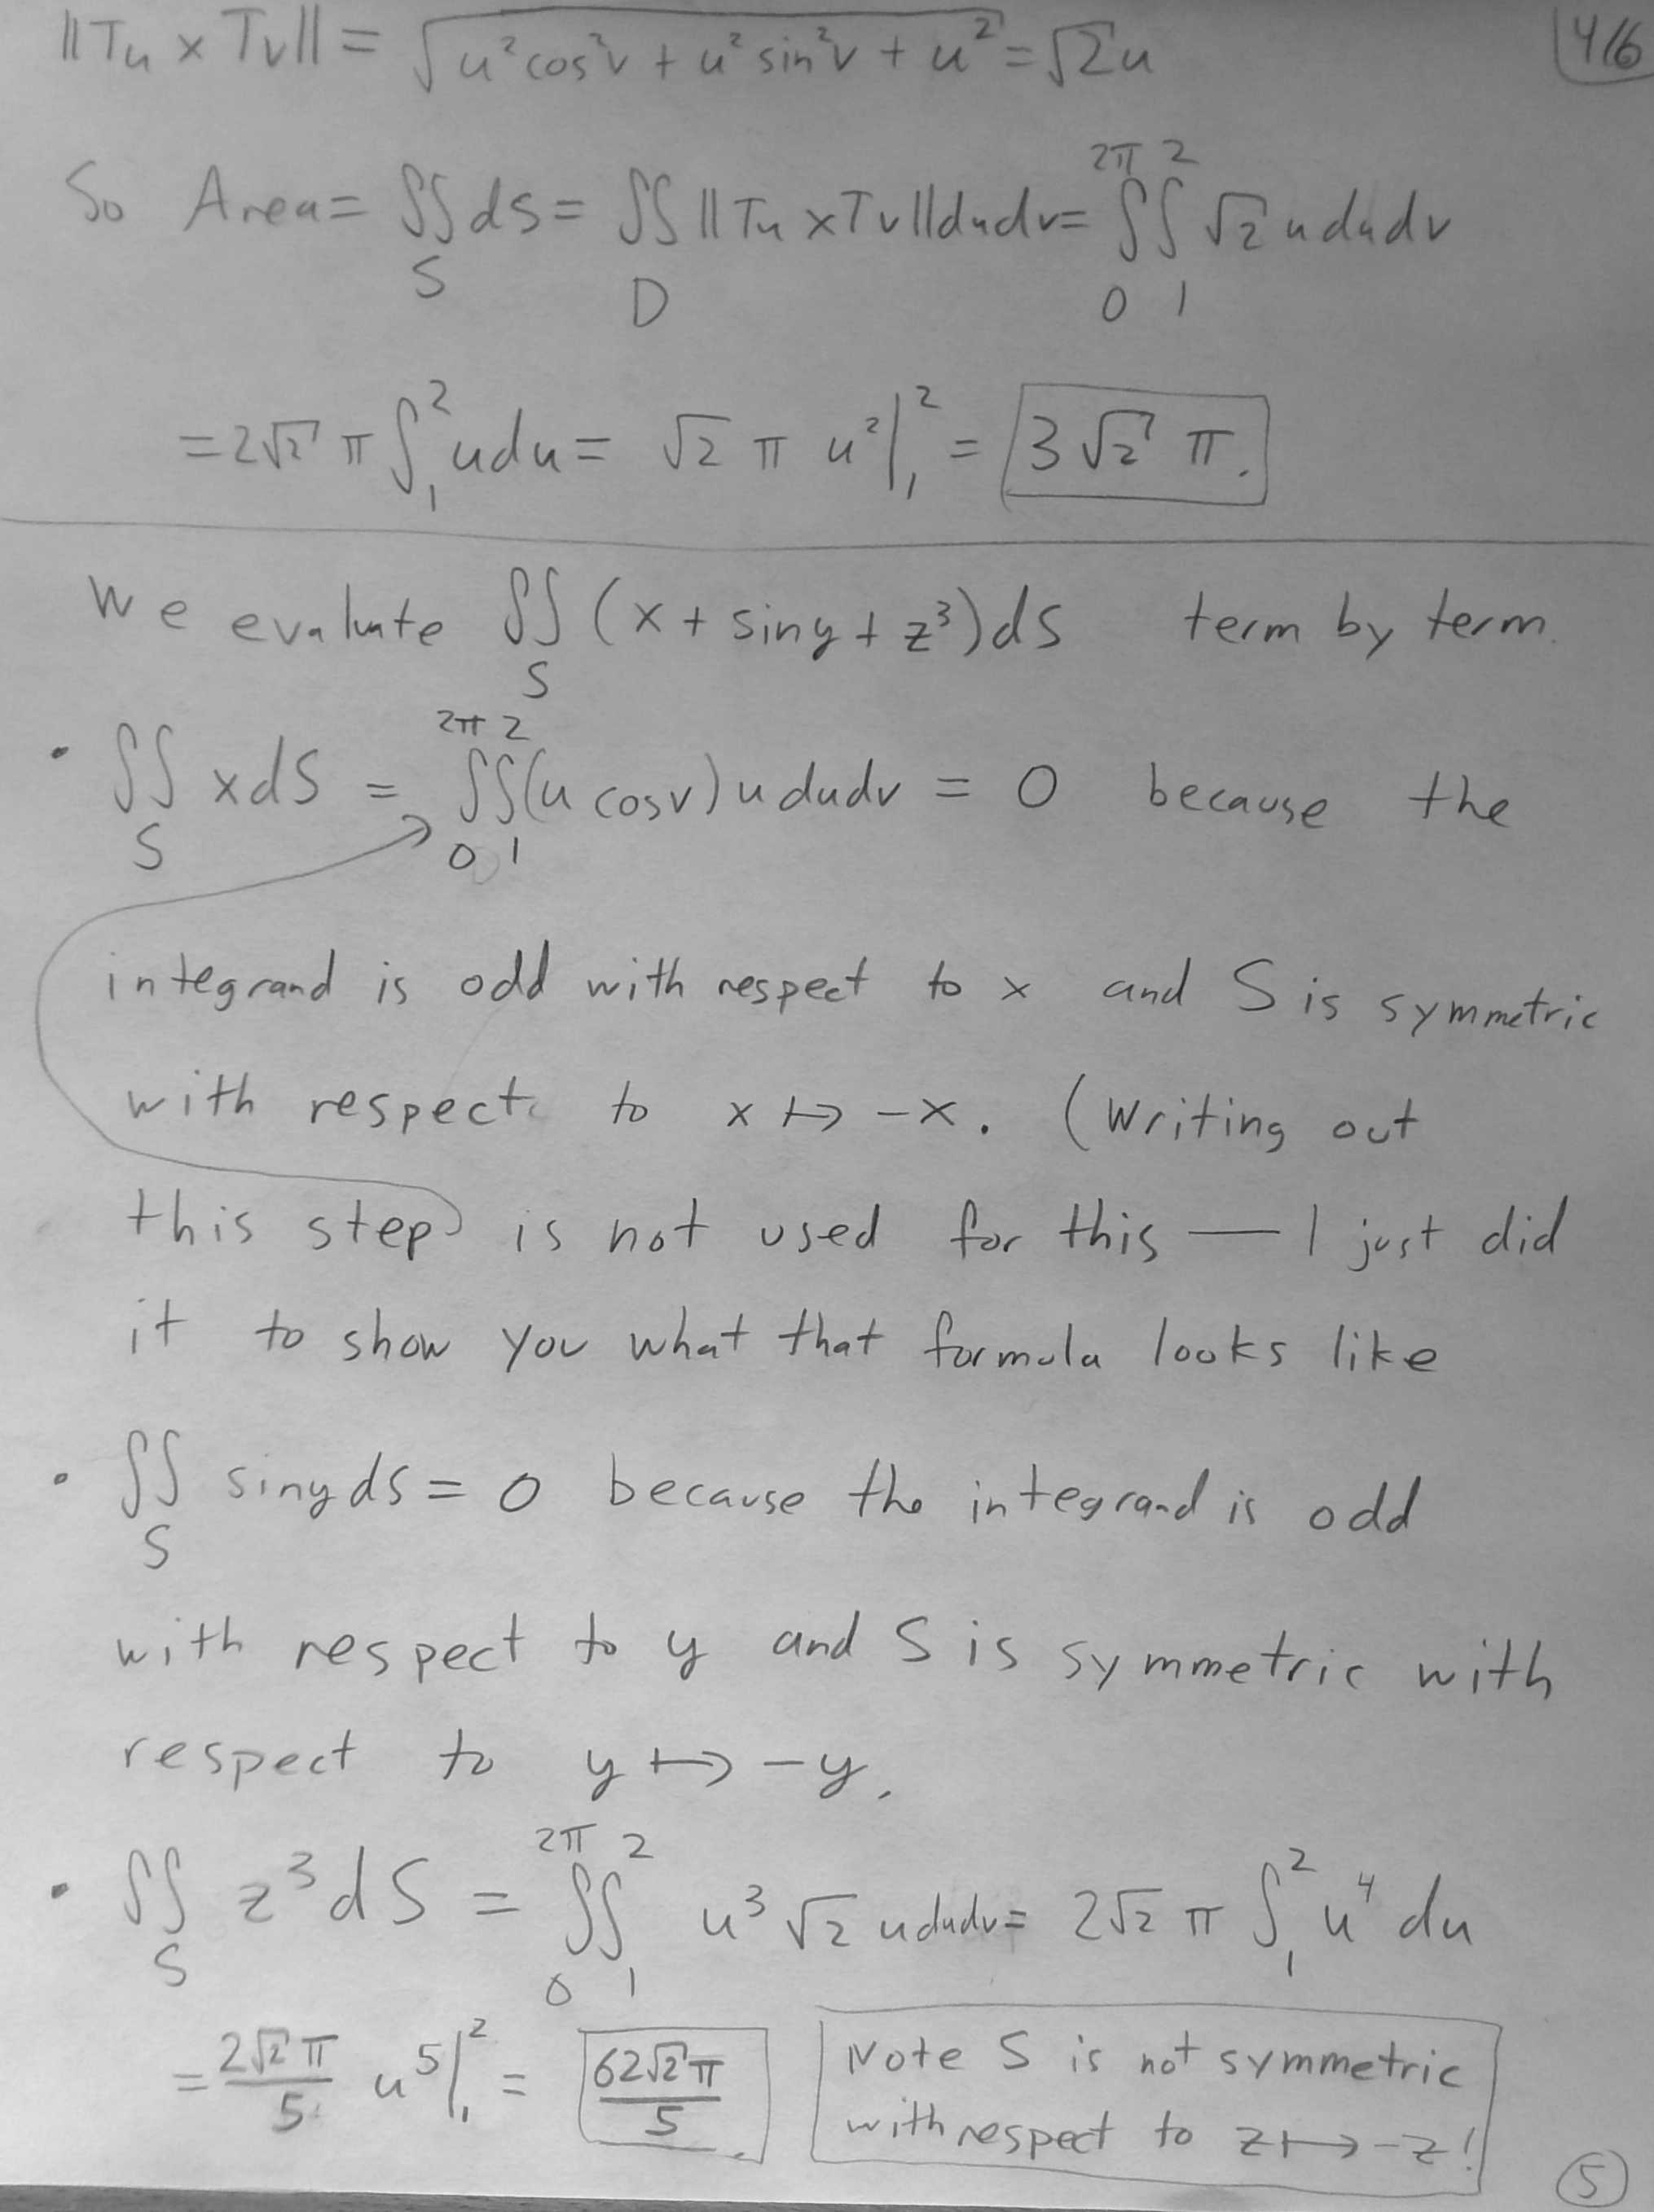 ||Tu × Tv|| = √(u²cos²v + u²sin²v + u²) = √2u
4/6
So Area = ∬_S dS = ∬_D ||Tu × Tv||dudv = ∫_0^2π ∫_1^2 √2 u du dv
= 2√2 π ∫_1^2 u du = √2 π u²|_1^2 = 3√2 π.
We evaluate ∬_S (x + sin y + z³)dS term by term.
• ∬_S x dS = ∫_0^2π ∫_1^2 (u cos v) u du dv = 0 because the
integrand is odd with respect to x and S is symmetric
with respect to x ↦ -x. (Writing out
this step is not used for this — I just did
it to show you what that formula looks like
• ∬_S sin y dS = 0 because the integrand is odd
with respect to y and S is symmetric with
respect to y ↦ -y.
• ∬_S z³ dS = ∫_0^2π ∫_1^2 u³ √2 u du dv = 2√2 π ∫_1^2 u⁴ du
= 2√2 π/5 u⁵|_1^2 = 62√2 π/5.
Note S is not symmetric
with respect to z ↦ -z!
5